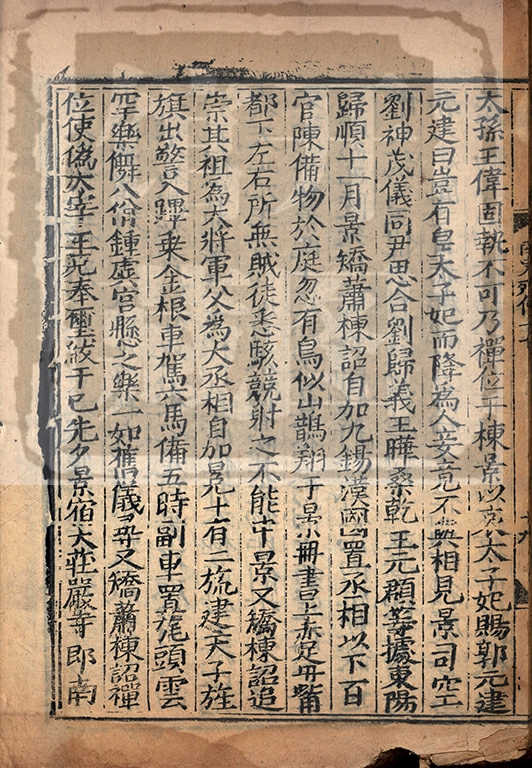 太孫王偉固執不可乃禪位于棟景以哀太子妃賜郭元建
元建曰豈有皇太子妃而降爲人妾竟不與相見景司空
劉神茂儀同尹思合劉歸義王曄桑乾王元頵等據東陽
歸順十一月景矯蕭棟詔自加九錫漢國置丞相以下百
官陳備物於庭忽有鳥似山鵲翔于景冊書上赤足丹觜
都下左右所無賊徒悉駭競射之不能中景又矯棟詔追
崇其祖為大將軍父爲大丞相自加冕十有二旒建天子旌
旗出警入蹕乘金根車駕六馬備五時副車置旄頭雲
罕樂儛八佾鍾虡宮懸之樂一如舊儀尋又矯蕭棟詔禪
位使僞太宰王克奉璽紱于己先夕景宿大莊嚴寺即南